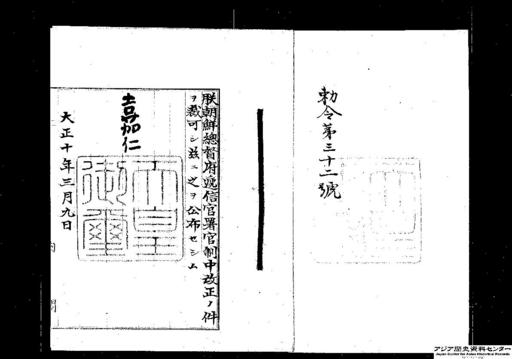 勅令第三十二號
朕朝鮮總督府遞信官署官制中改正ノ件
ヲ裁可シ茲ニ之ヲ公布セシム
嘉仁
天皇
御璽
大正十年三月九日
内閣
アジア歴史資料センター
Japan Center for Asian Historical Records